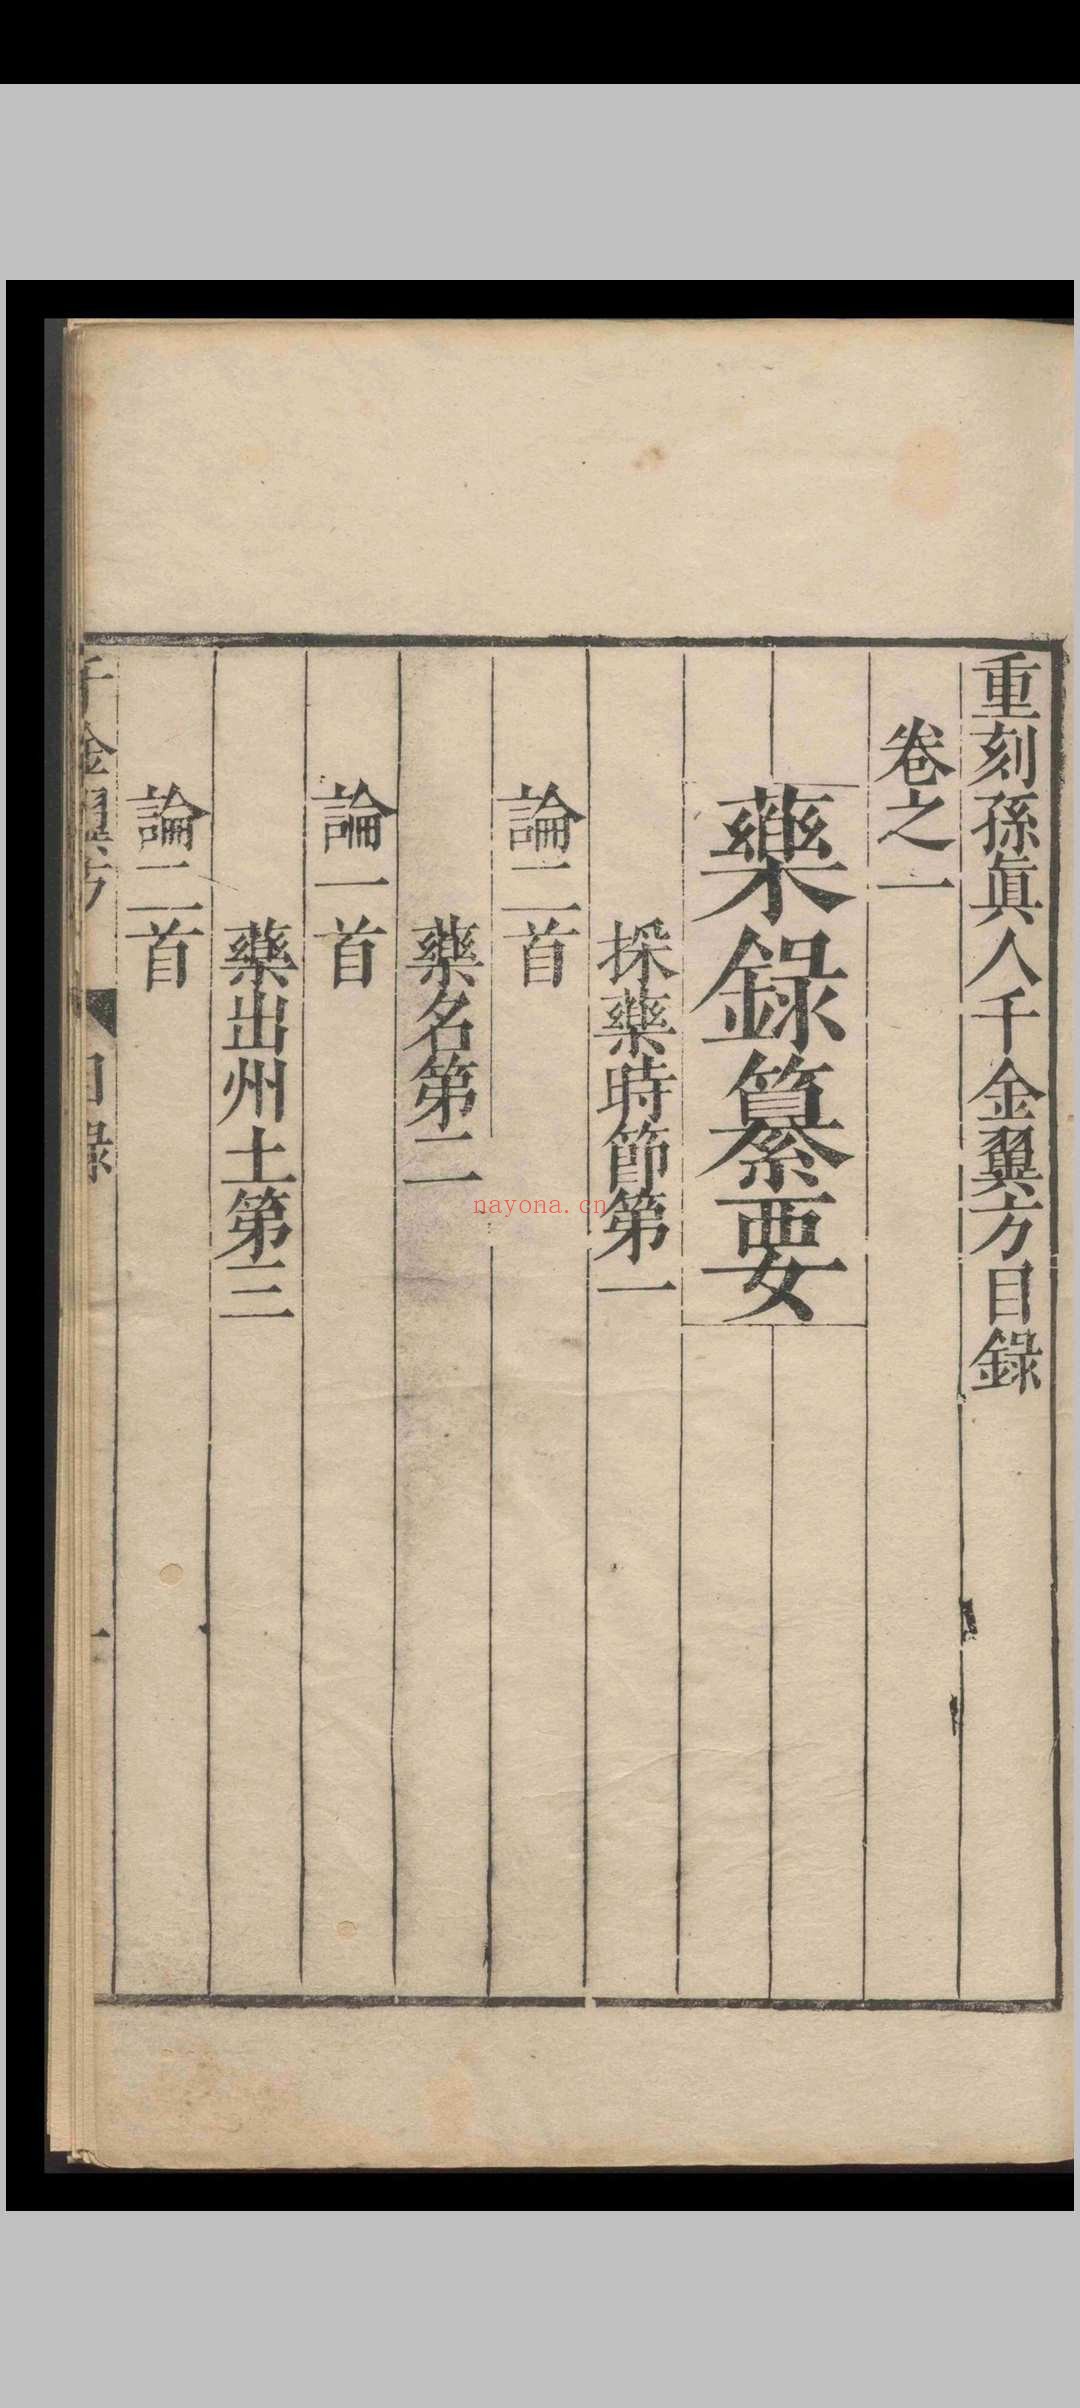 重刻孫眞人千金翼方目錄
卷之一
藥錄纂要
採藥時節第一
論二首
藥名第二
論一首
藥出州土第三
論二首
千金翼方 目錄 一
nayona.cn